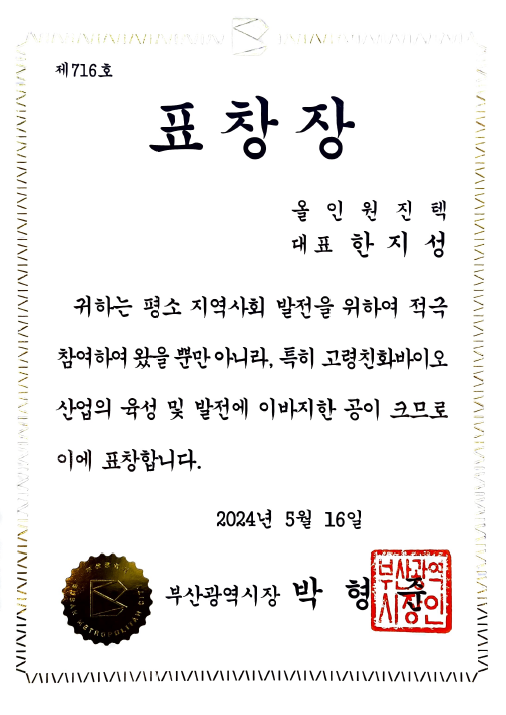 제716호
표창장
올인원진텍
대표 한지성
귀하는 평소 지역사회 발전을 위하여 적극
참여하여 왔을 뿐만 아니라, 특히 고령친화바이오
산업의 육성 및 발전에 이바지한 공이 크므로
이에 표창합니다.
2024년 5월 16일
부산광역시장 박형준
부산광역
시장인
BUSAN METROPOLITAN CITY